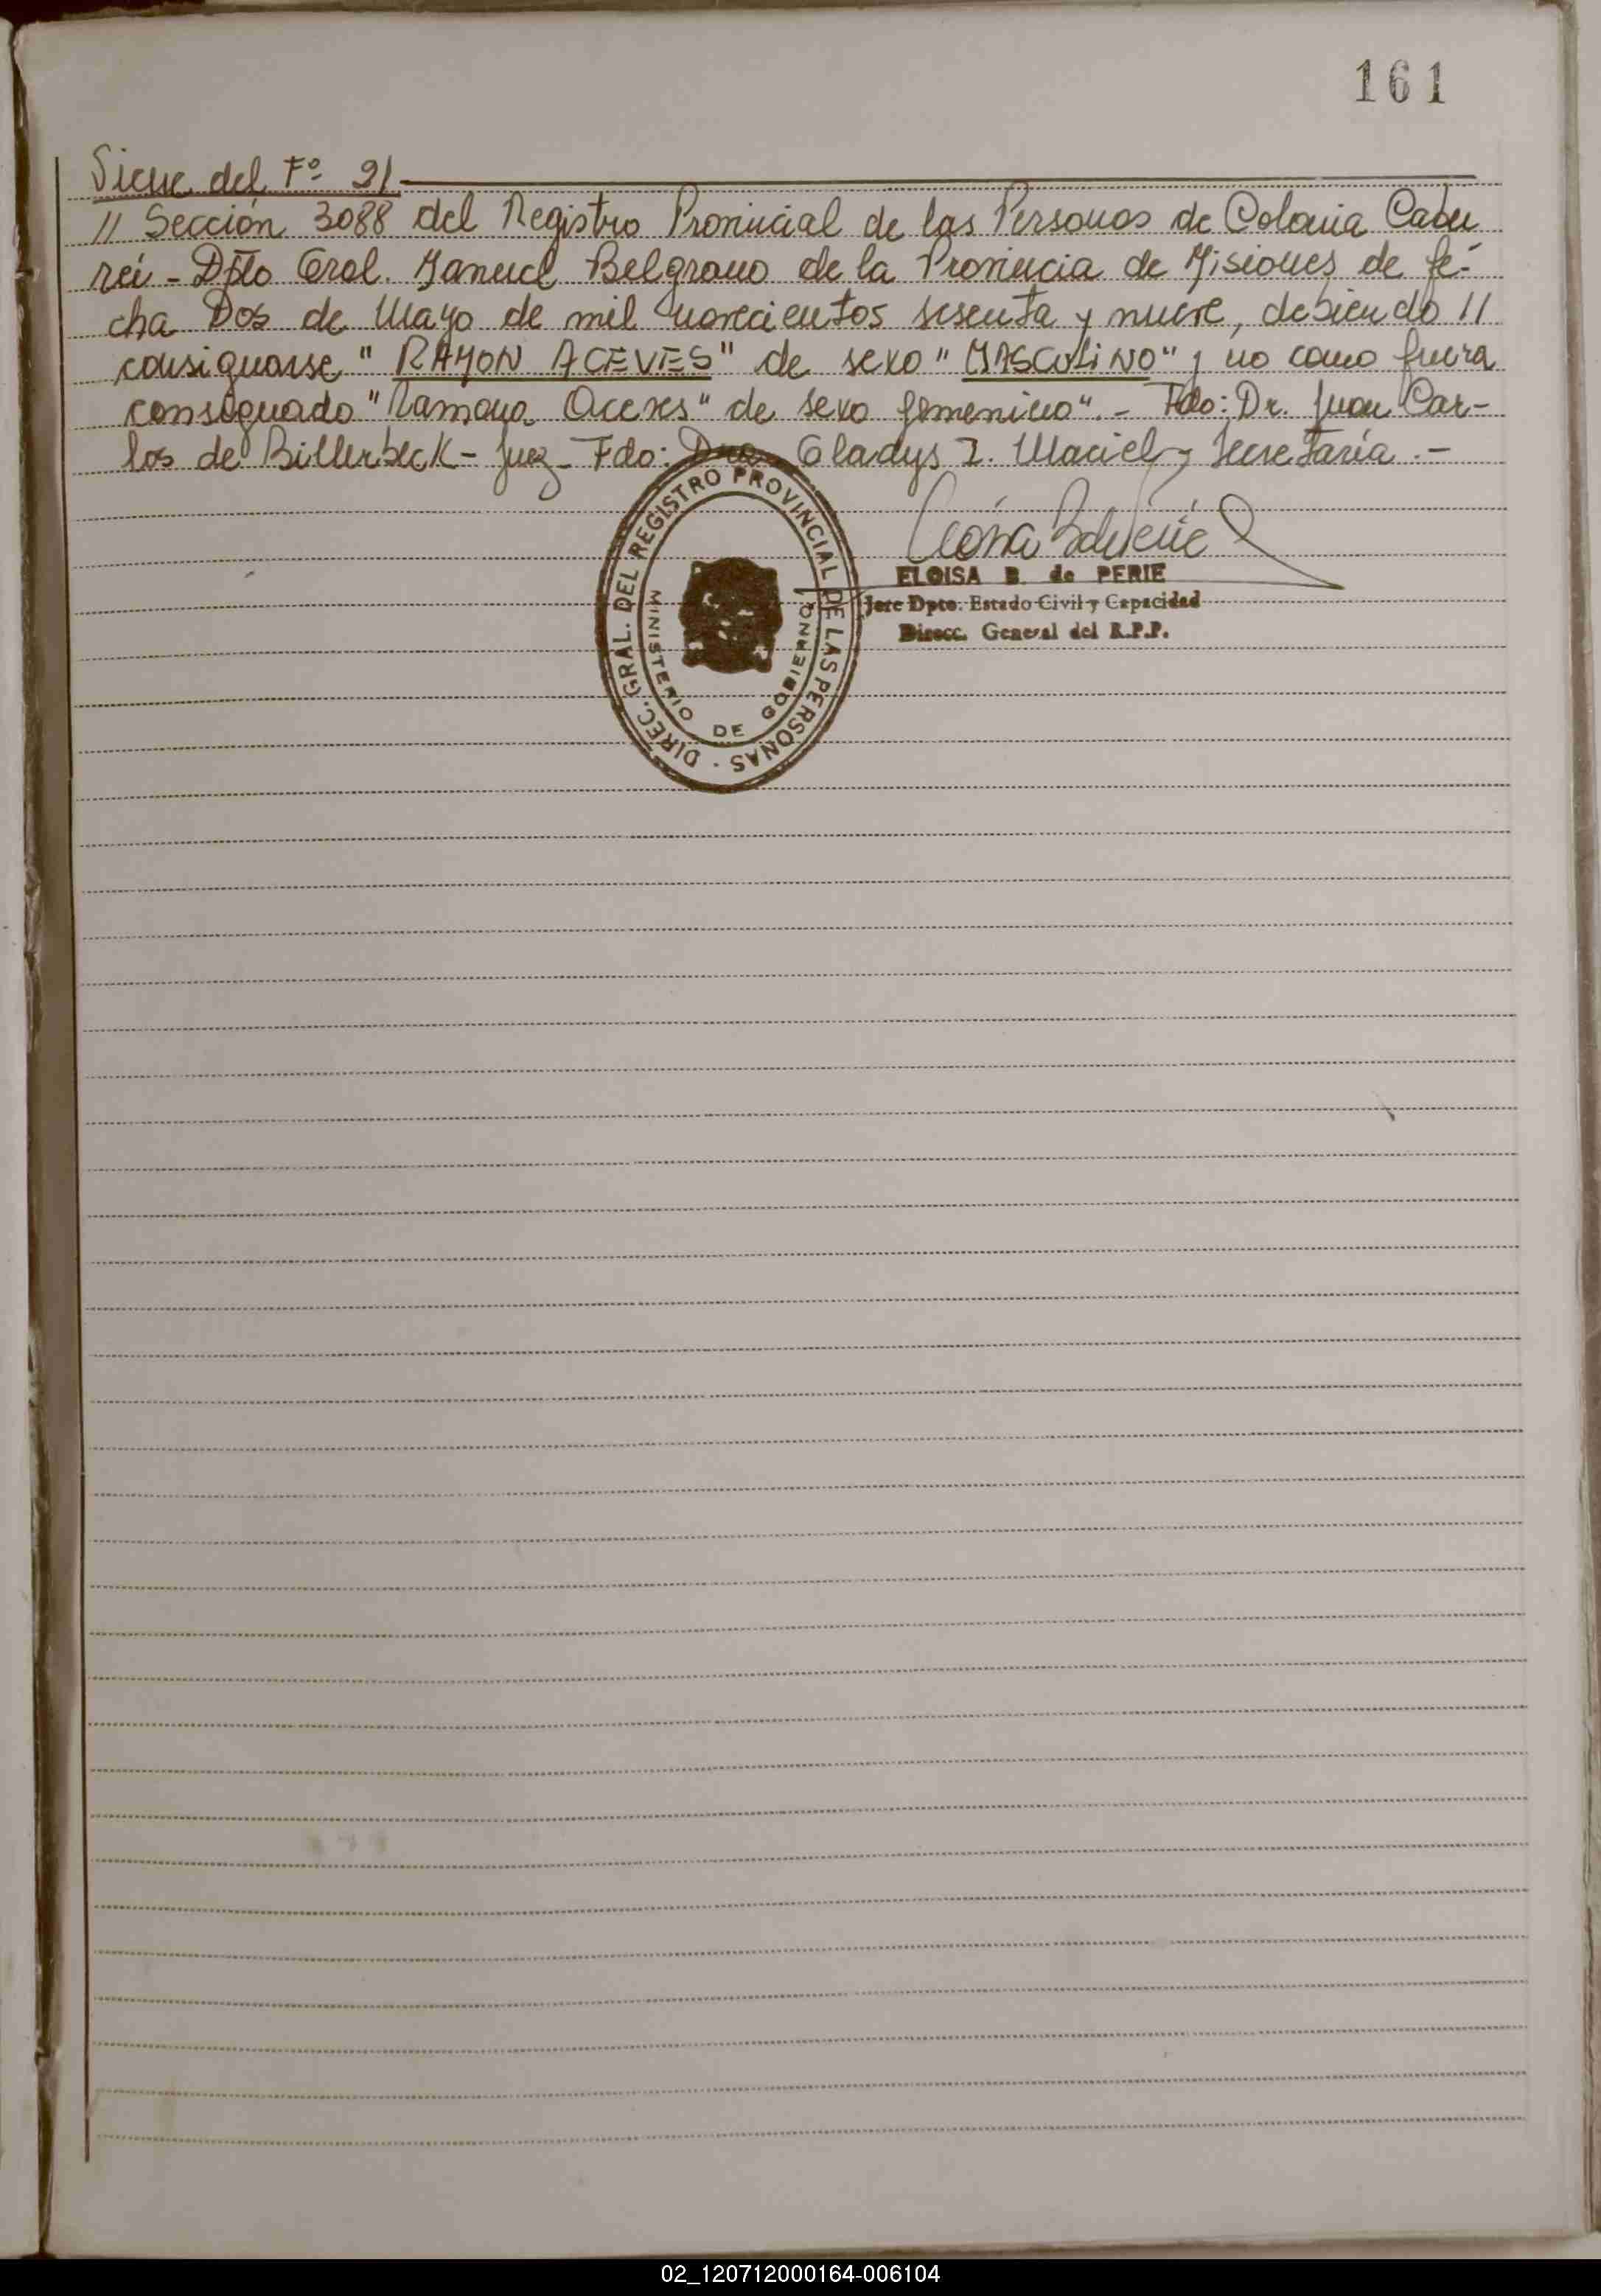 161
Sigue del Fº 91
// Sección 3088 del Registro Provincial de las Personas de Colonia Cabu
reí - Dpto Gral. Manuel Belgrano de la Provincia de Misiones de fe-
cha Dos de Mayo de mil novecientos sesenta y nueve, debiendo //
consignarse "RAMON ACEVES" de sexo "MASCULINO" y no como fuera
consignado "Ramona Aceves" de sexo femenino". - Fdo: Dr. Juan Car-
los de Billerbeck - Juez - Fdo: Dra. Gladys I. Maciel - Secretaría . -
ELOISA B. de PERIE
Jefe Dpto. Estado Civil y Capacidad
Direcc. General del R.P.P.
DIREC. GRAL. DEL REGISTRO PROVINCIAL DE LAS PERSONAS ·
MINISTERIO DE GOBIERNO
02_120712000164-006104